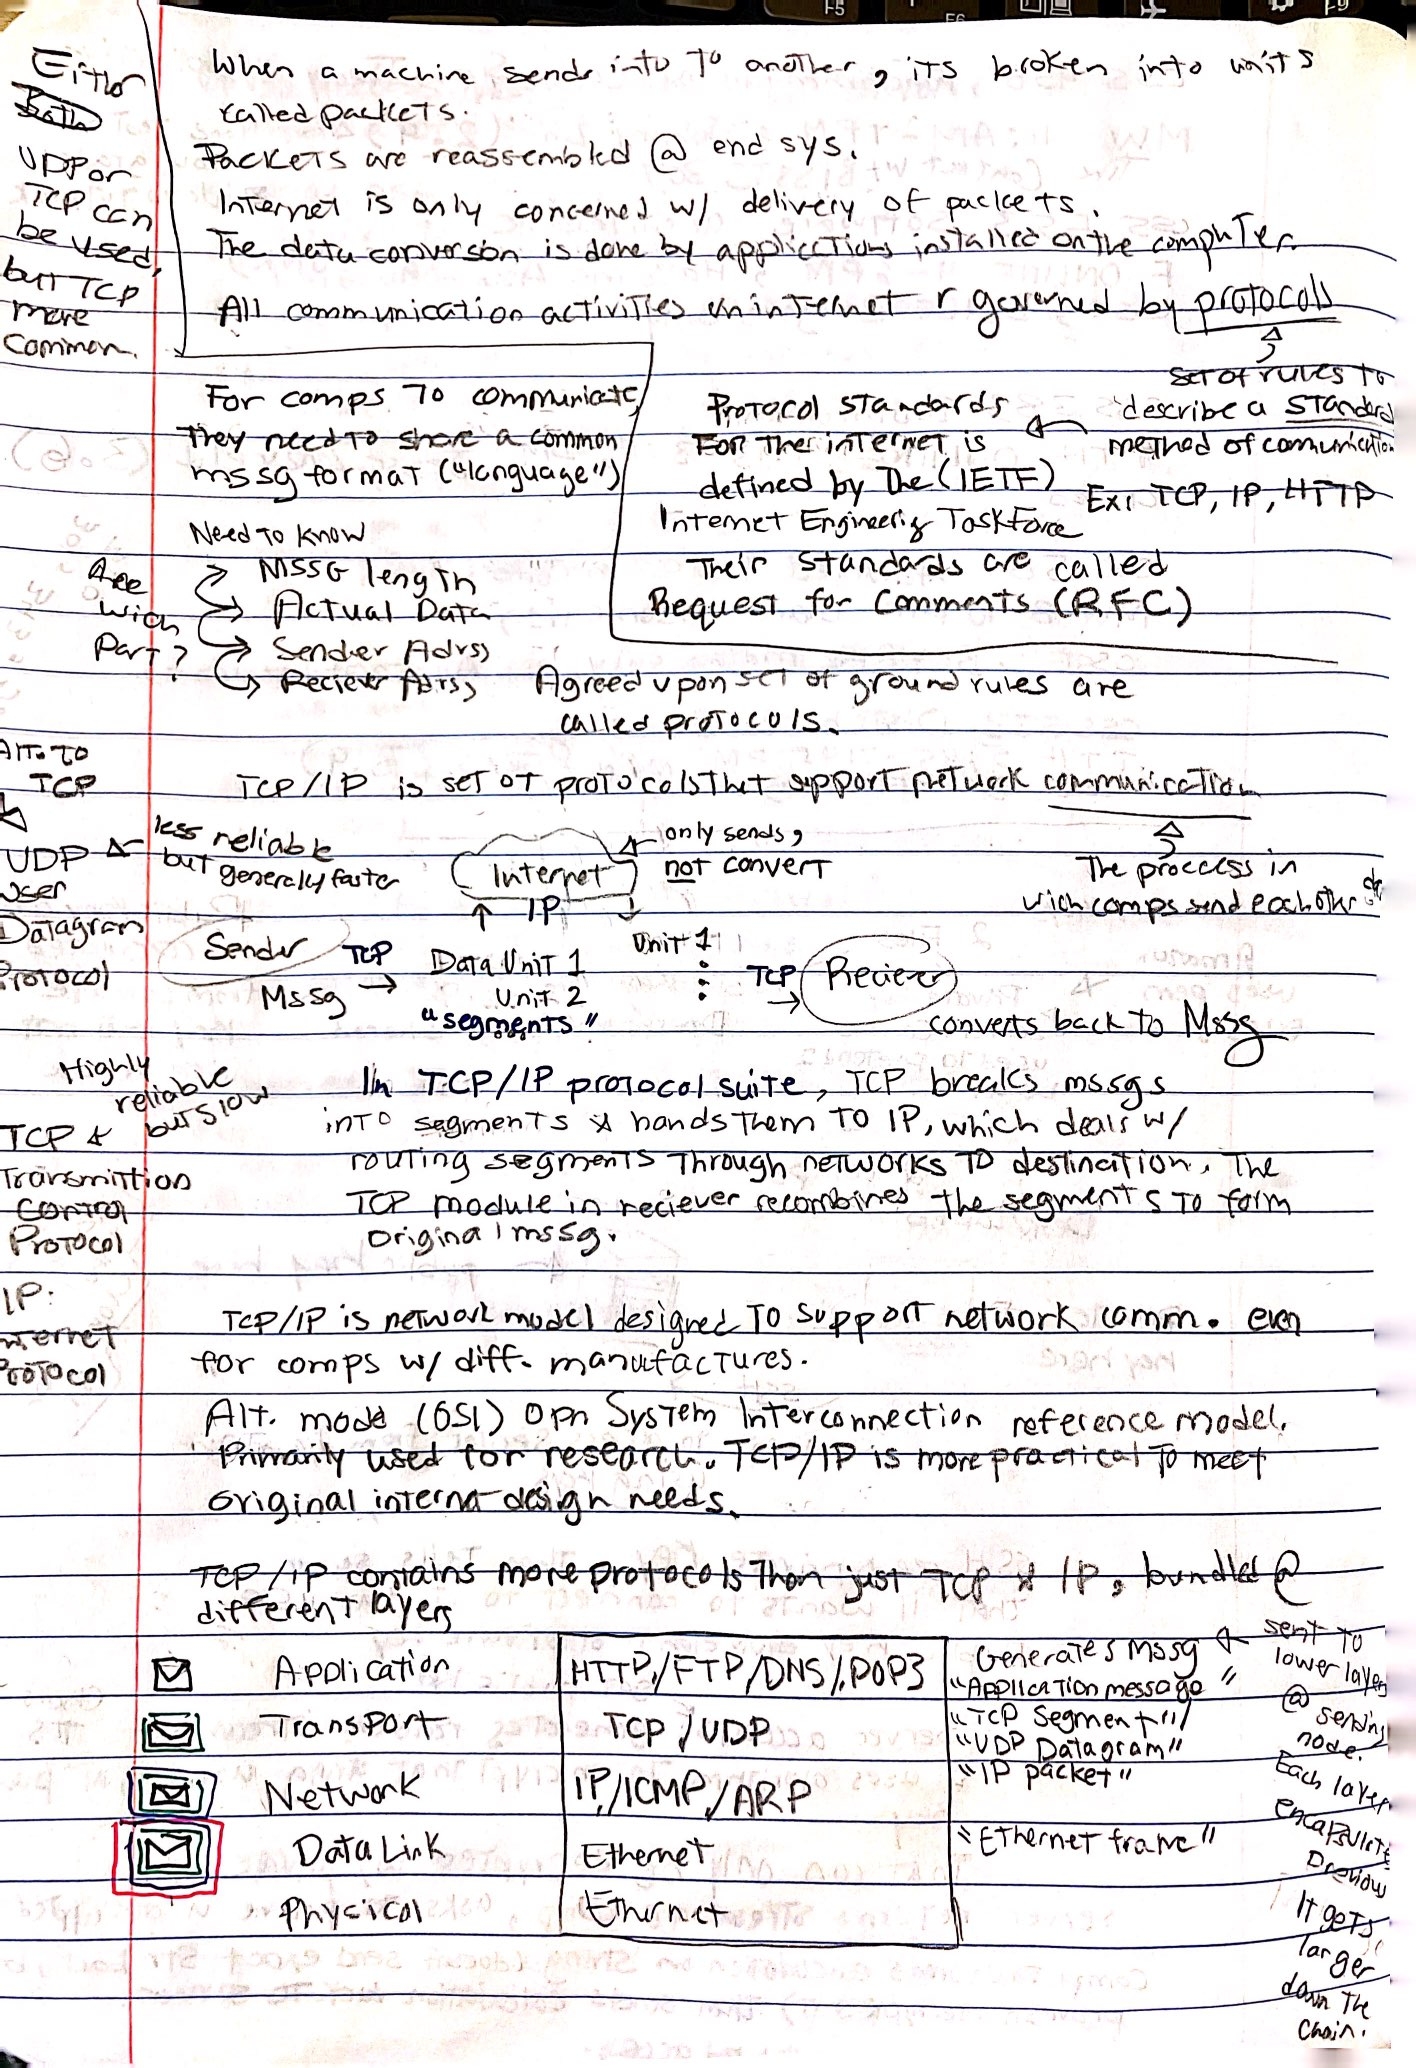 When a machine sends info to another, its broken into units
called packets.
Packets are reassembled @ end sys.
Internet is only concerned w/ delivery of packets.
The data conversion is done by applications installed on the computer.
All communication activities on internet r governed by protocols
Either
UDP or
TCP can
be used,
but TCP
more
common.
set of rules to
describe a standard
method of comunication
Ex: TCP, IP, HTTP
Protocol standards
For the internet is
defined by the (IETF)
Internet Engineering Task Force
Their standards are called
Request for Comments (RFC)
For comps to communicate,
they need to share a common
mssg format ("language")
Need to know
MSSG length
Actual Data
Sender Adrss
Reciever Adrss
Are
wich
Part?
Agreed upon set of ground rules are
called protocols.
TCP/IP is set of protocols that support network communication
The proccess in
wich comps send each other
Alt. to
TCP
UDP
User
Datagram
Protocol
less reliable
but generally faster
Internet
IP
only sends,
not convert
Sender
Mssg
TCP
Data Unit 1
Unit 2
"segments"
Unit 1
TCP
Reciever
converts back to Mssg
Highly
reliable
but slow
TCP
Transmittion
Control
Protocol
In TCP/IP protocol suite, TCP breaks mssgs
into segments & hands them to IP, which deals w/
routing segments through networks to destination. The
TCP module in reciever recombines the segments to form
original mssg.
IP:
Internet
Protocol
TCP/IP is network model designed to support network comm. even
for comps w/ diff. manufactures.
Alt. mode (OSI) Opn System Interconnection reference model.
Primarily used for research. TCP/IP is more practical to meet
original interne design needs.
TCP/IP contains more protocols than just TCP & IP, bundled @
different layers
Application HTTP/FTP/DNS/POP3 Generates Mssg
"Application message"
Transport TCP/UDP "TCP Segment"/
"UDP Datagram"
Network IP/ICMP/ARP "IP packet"
Data Link Ethernet "Ethernet frame"
Physical Ethernet
sent to
lower layers
@ sending
node.
Each layer
encapsulate
previous
It gets
larger
down the
chain.